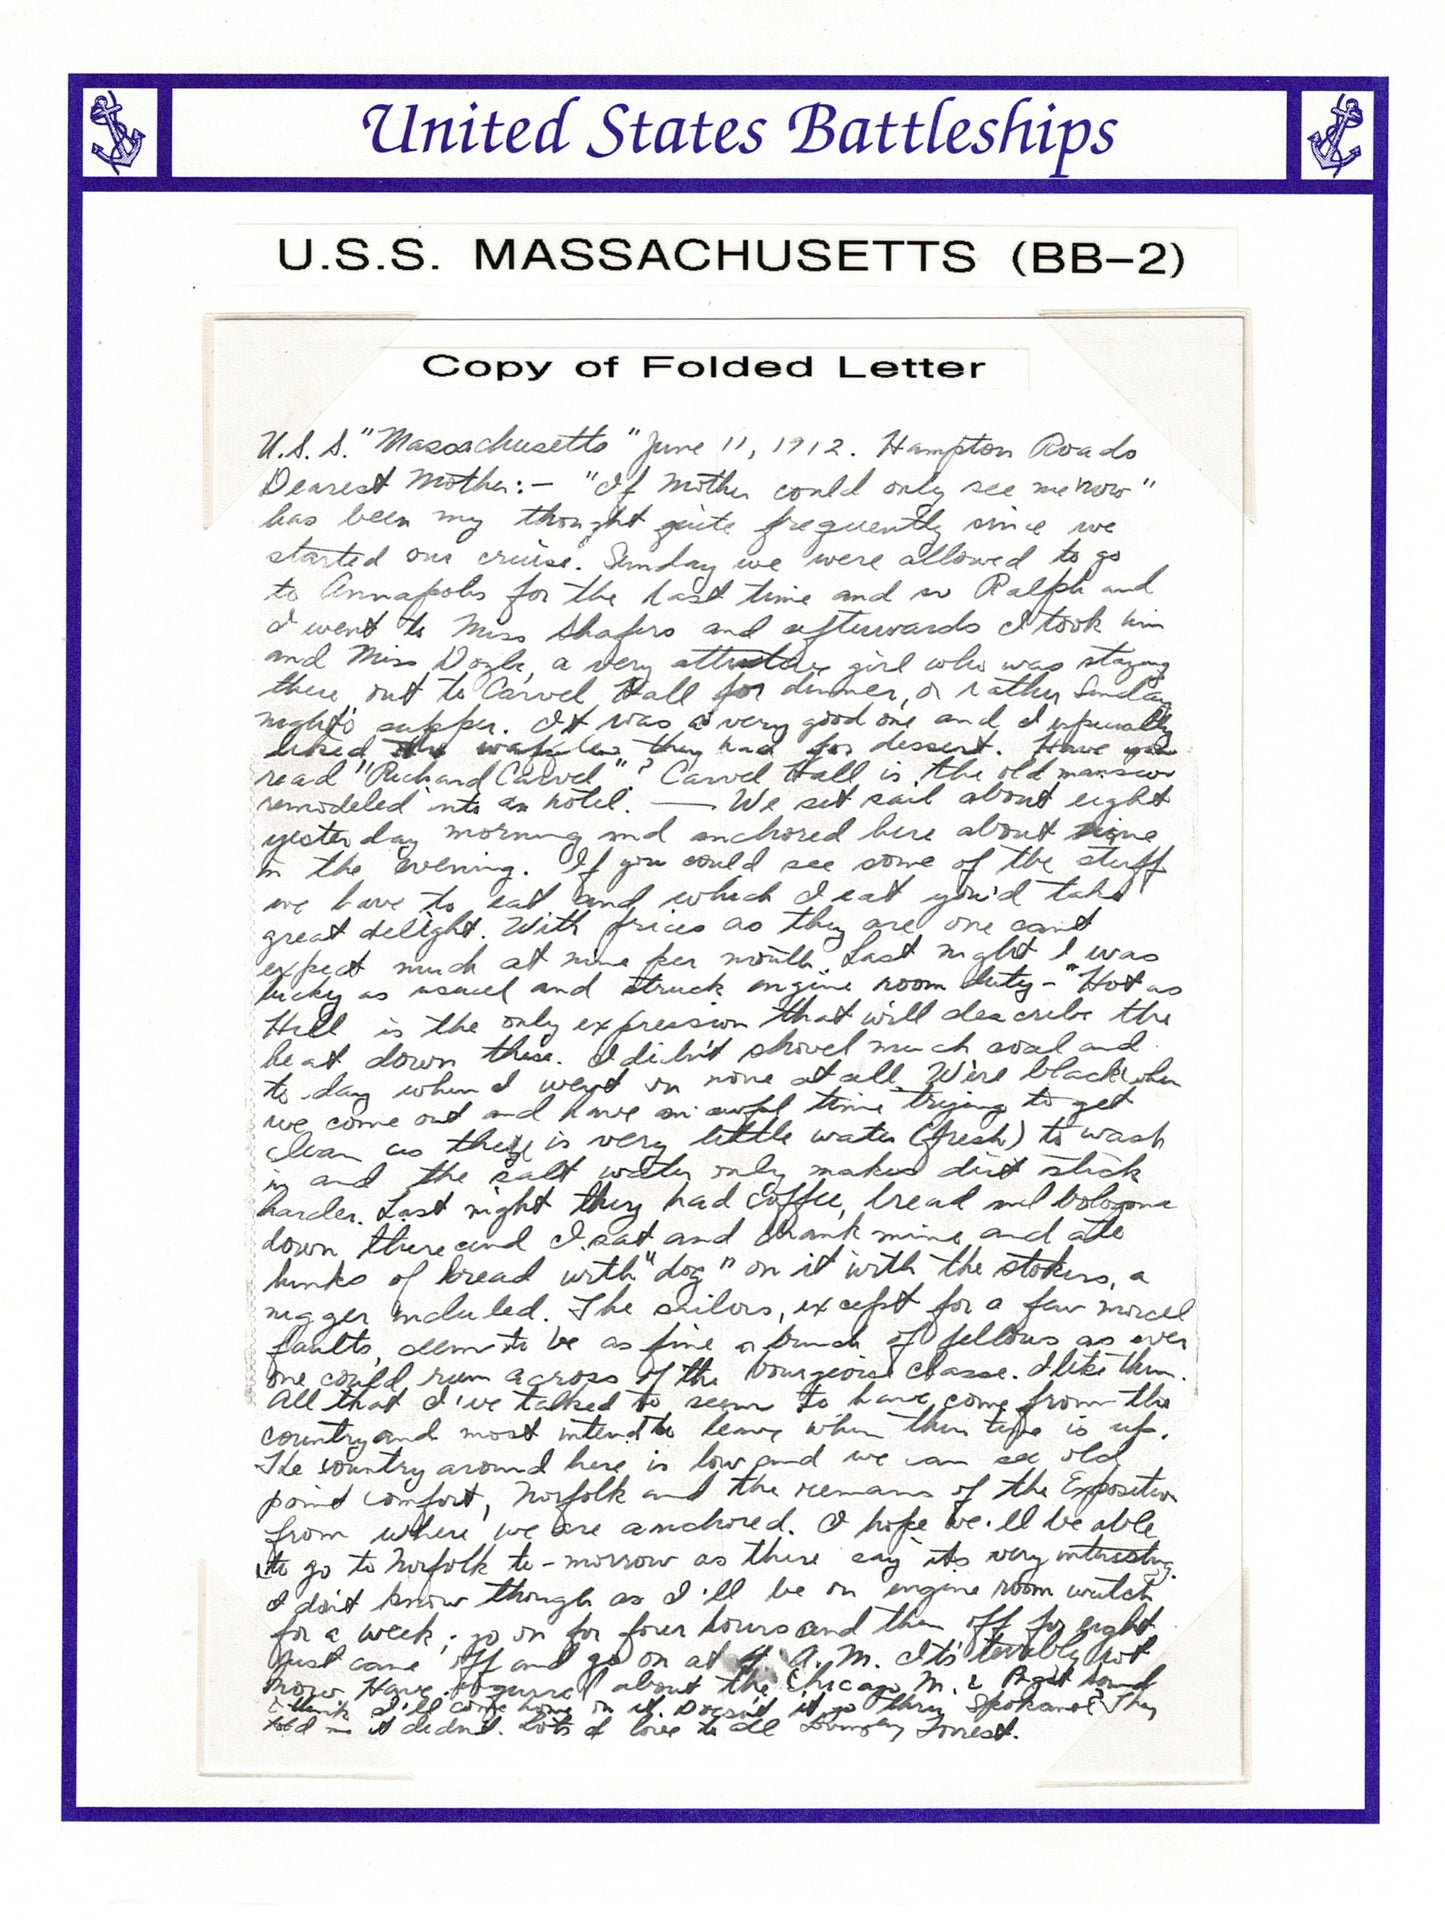 United States Battleships
U.S.S. MASSACHUSETTS (BB-2)
Copy of Folded Letter
U.S.S. "Massachusetts" June 11, 1912. Hampton Roads
Dearest Mother:- "If Mother could only see me now"
has been my thought quite frequently since we
started our cruise. Sunday we were allowed to go
to Annapolis for the last time and so Ralph and
I went to Miss Shafers and afterwards I took him
and Miss Doyle, a very attractive girl who was staying
there, out to Carvel Hall for dinner, or rather Sunday
night's supper. It was a very good one and I especially
liked the waffles they had for dessert. Have you
read "Richard Carvel"? Carvel Hall is the old mansion
remodeled into an hotel. — We set sail about eight
yesterday morning and anchored here about nine
in the evening. If you could see some of the stuff
we have to eat and which I eat you'd take
great delight. With prices as they are one can't
expect much at nine per month. Last night I was
lucky as usual and struck engine room duty - "Hot as
Hell is the only expression that will describe the
heat down there. I didn't shovel much coal and
to-day when I went on none at all. We're black when
we come out and have an awful time trying to get
clean as there is very little water (fresh) to wash
in and the salt water only makes dirt stick
harder. Last night they had coffee, bread and bologna
down there and I sat and drank mine and ate
hunks of bread with "dog" on it with the stokers, a
nigger included. The sailors, except for a few morcel
faults, seem to be as fine a bunch of fellows as ever
one could run across of the bourgeoise classe. I like them.
All that I've talked to seem to have come from the
country and most intend to leave when their time is up.
The country around here is low and we can see old
point comfort, Norfolk and the remans of the Exposition
from where we are anchored. I hope we'll be able
to go to Norfolk to-morrow as there say its very interesting.
I don't know though as I'll be on engine room watch
for a week; go on for four hours and then off for eight
Just came off and go on at 4 A.M. It's terribly hot
now. Have about the Chicago M. & Puget Sound
I think I'll come home on it. Doesn't it go thru Spokane? They
told me it didn't. Lots of love to all Forrest.